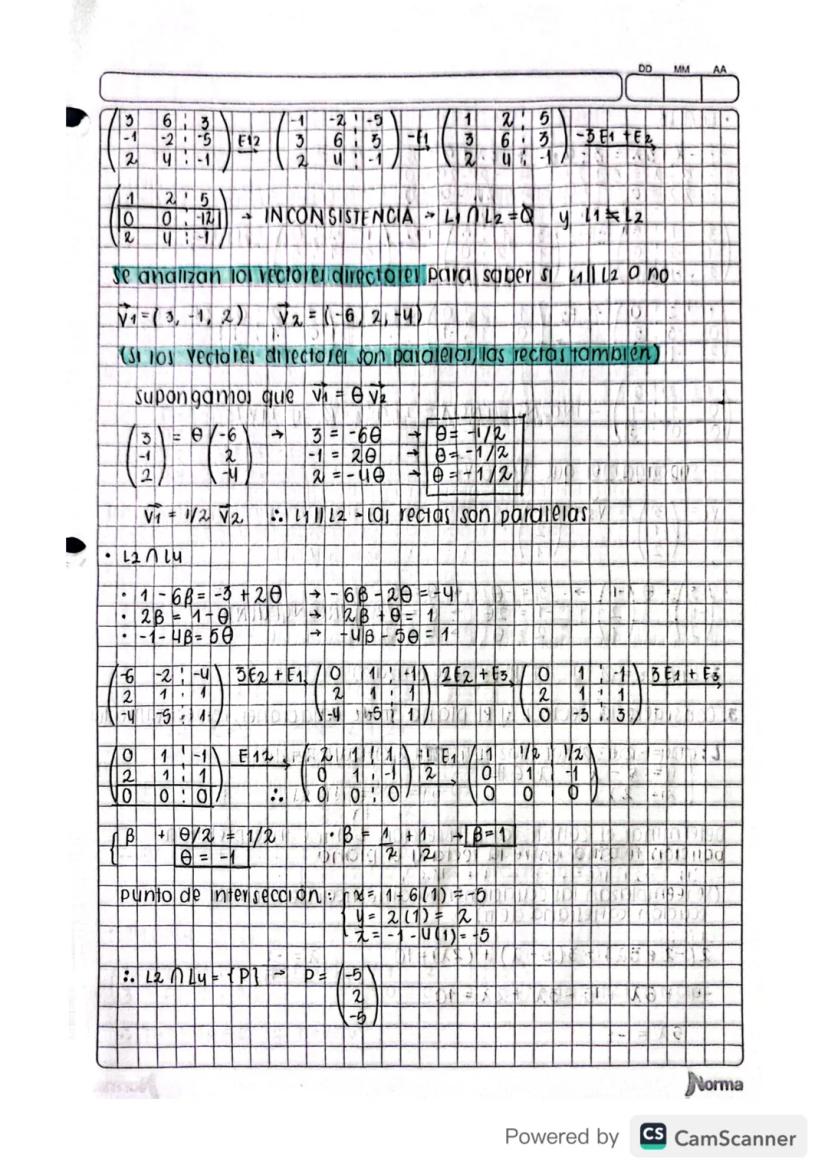 DD MM AA
(3 6 ⋮ 3) (-1 -2 ⋮ -5) (1 2 ⋮ 5)
(-1 -2 ⋮ -5) E12 (3 6 ⋮ 3) -E1 (3 6 ⋮ 3) -3E1 + E2
(2 4 ⋮ -1) (2 4 ⋮ -1) (2 4 ⋮ -1)
(1 2 ⋮ 5)
(0 0 ⋮ -12) → INCONSISTENCIA → L1 ∩ L2 = Ø y L1 ≠ L2
(2 4 ⋮ -1)
Se analizan los vectores directores para saber si L1 || L2 o no
V1 = (3, -1, 2) V2 = (-6, 2, -4)
(Si los vectores directores son paralelos, las rectas también)
supongamos que V1 = θ V2
(3) = θ (-6) → 3 = -6θ → θ = -1/2
(-1) (2) -1 = 2θ → θ = -1/2
(2) (-4) 2 = -4θ → θ = -1/2
V1 = 1/2 V2 ∴ L1 || L2 - las rectas son paralelas
• L2 ∩ L4
• 1 - 6β = -3 + 2θ → -6β - 2θ = -4
• 2β = 1 - θ → 2β + θ = 1
• -1 - 4β = 5θ → -4β - 5θ = 1
(-6 -2 ⋮ -4) 3E2 + E1 (0 1 ⋮ -1) 2E2 + E3 (0 1 ⋮ -1) 3E1 + E3
(2 1 ⋮ 1) (2 1 ⋮ 1) (2 1 ⋮ 1)
(-4 -5 ⋮ 1) (-4 -5 ⋮ 1) (0 -3 ⋮ 3)
(0 1 ⋮ -1) E12 (2 1 ⋮ 1) 1/2 E1 (1 1/2 ⋮ 1/2)
(2 1 ⋮ 1) (0 1 ⋮ -1) (0 1 ⋮ -1)
(0 0 ⋮ 0) ∴ (0 0 ⋮ 0) (0 0 0)
{ β + θ/2 = 1/2 • β = 1/2 + 1/2 → β = 1
θ = -1
punto de intersección: { x = 1 - 6(1) = -5
y = 2(1) = 2
z = -1 - 4(1) = -5
∴ L2 ∩ L4 = {P} → P = (-5)
(2)
(-5)
Norma
Powered by CS CamScanner